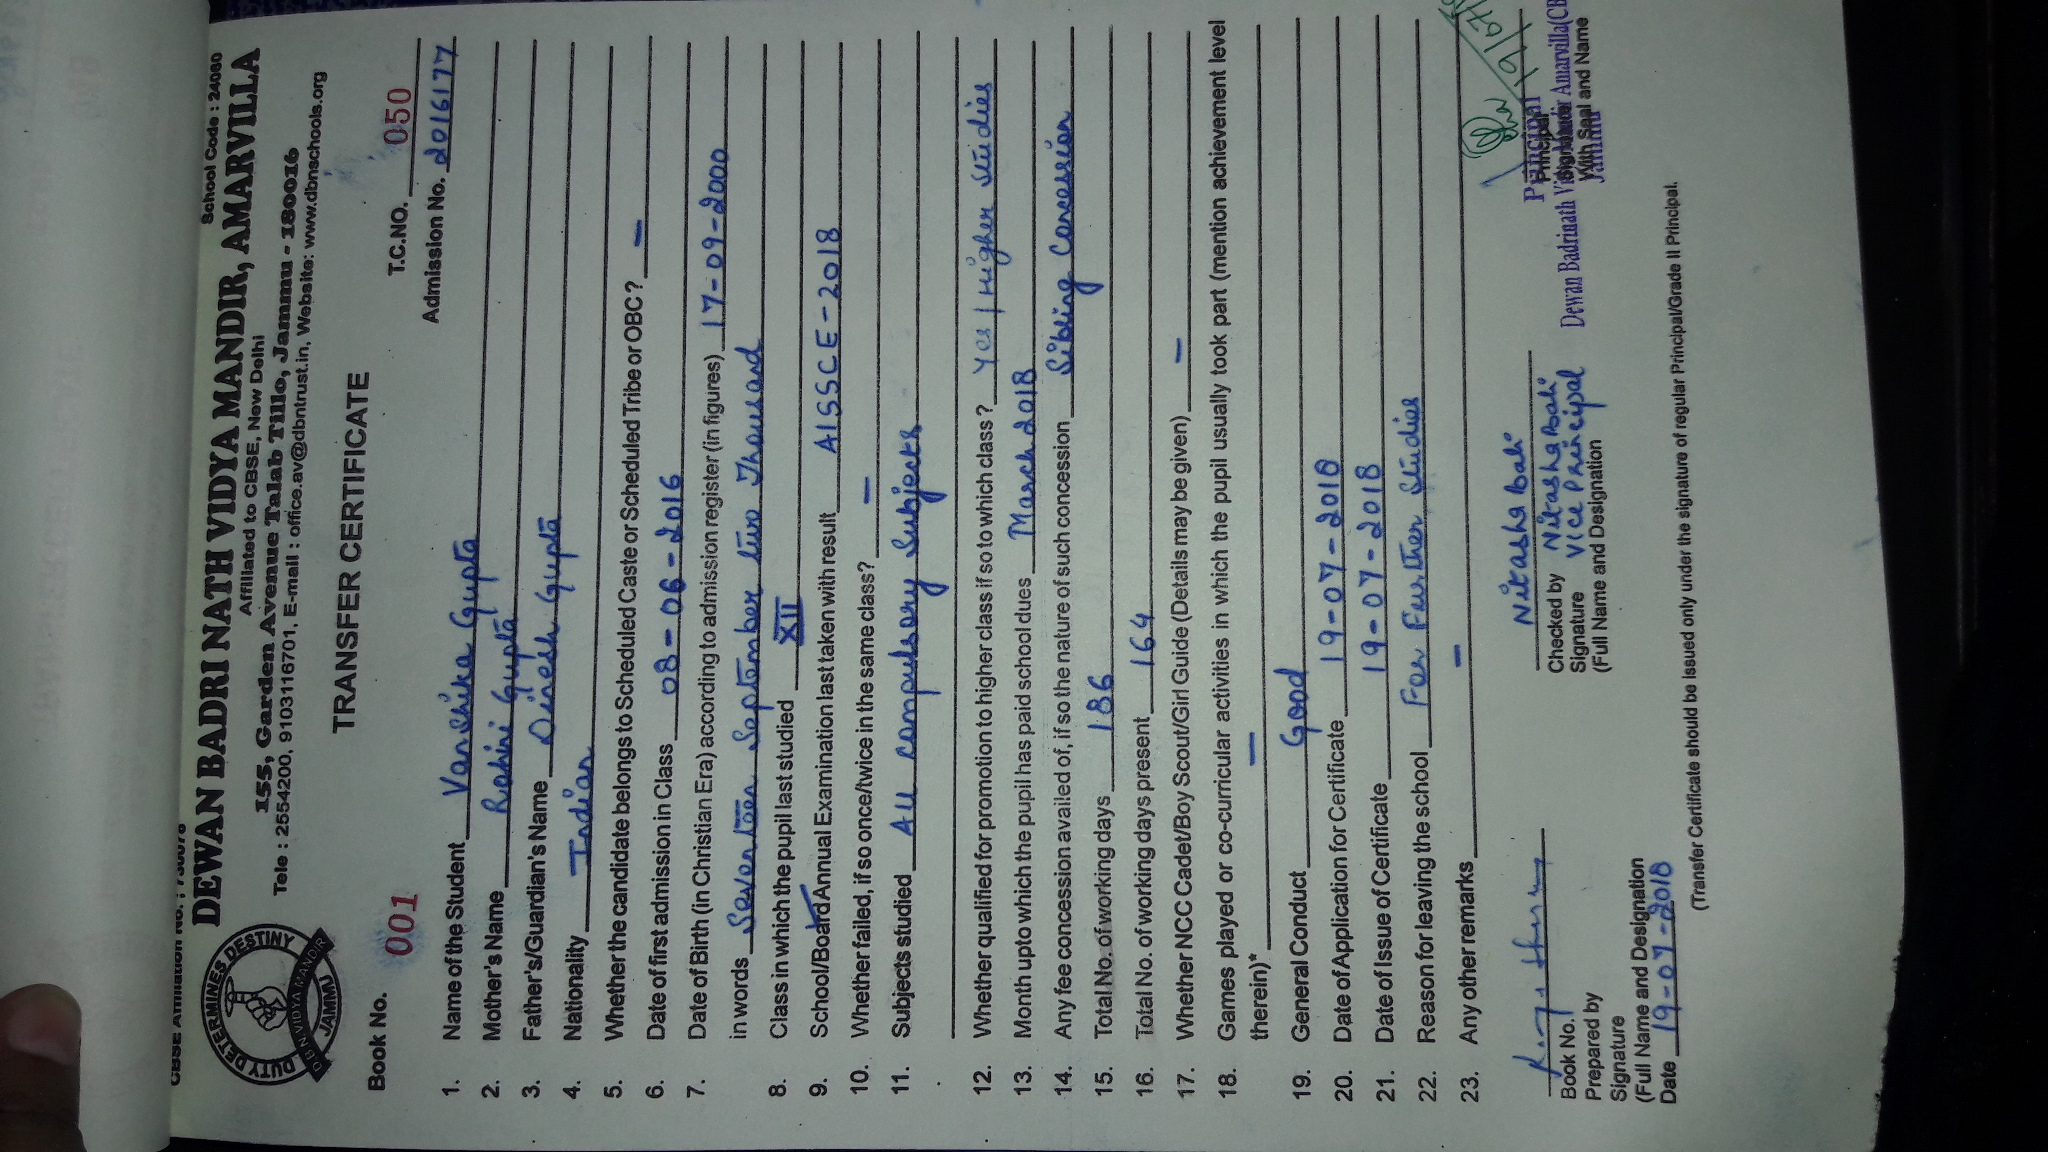 School Code : 24080
DEWAN BADRI NATH VIDYA MANDIR, AMARVILLA
Affiliated to CBSE, New Delhi
155, Garden Avenue Talab Tillo, Jammu - 180016
Tele : 2554200, 9103116701, E-mail : office.av@dbntrust.in, Website: www.dbnschools.org
DUTY DETERMINES DESTINY
D.B.N VIDYA MANDIR
JAMMU
TRANSFER CERTIFICATE
Book No. 001 T.C.NO. 050
Admission No. 2016177
1. Name of the Student Vanshika Gupta
2. Mother's Name Rohini Gupta
3. Father's/Guardian's Name Dinesh Gupta
4. Nationality Indian
5. Whether the candidate belongs to Scheduled Caste or Scheduled Tribe or OBC? –
6. Date of first admission in Class 08-06-2016
7. Date of Birth (in Christian Era) according to admission register (in figures) 17-09-2000
in words Seventeen September two Thousand
8. Class in which the pupil last studied XII
9. School/Board Annual Examination last taken with result AISSCE-2018
10. Whether failed, if so once/twice in the same class? –
11. Subjects studied All compulsory Subjects
12. Whether qualified for promotion to higher class if so to which class ? Yes / Higher Studies
13. Month upto which the pupil has paid school dues March 2018
14. Any fee concession availed of, if so the nature of such concession Sibling Concession
15. Total No. of working days 186
16. Total No. of working days present 164
17. Whether NCC Cadet/Boy Scout/Girl Guide (Details may be given) –
18. Games played or co-curricular activities in which the pupil usually took part (mention achievement level
therein)* –
19. General Conduct Good
20. Date of Application for Certificate 19-07-2018
21. Date of Issue of Certificate 19-07-2018
22. Reason for leaving the school For Further Studies
23. Any other remarks –
Nitasha Bali
Book No.
Prepared by
Signature
(Full Name and Designation
Date 19-07-2018
Checked by Nitasha Bali
Signature Vice Principal
(Full Name and Designation
Principal
With Seal and Name
(Transfer Certificate should be issued only under the signature of regular Principal/Grade II Principal.